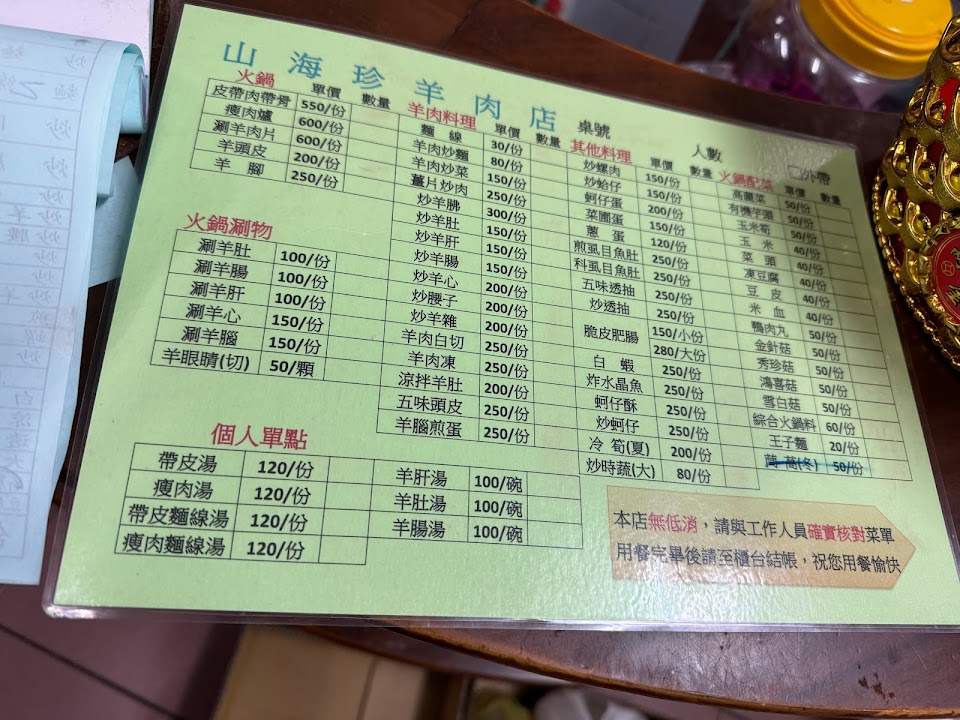 山海珍羊肉店
桌號 人數 □外帶
火鍋 單價 數量
皮帶肉帶骨 550/份
瘦肉爐 600/份
涮羊肉片 600/份
羊頭皮 200/份
羊腳 250/份
火鍋涮物
涮羊肚 100/份
涮羊腸 100/份
涮羊肝 100/份
涮羊心 150/份
涮羊腦 150/份
羊眼睛(切) 50/顆
羊肉料理 單價 數量
麵線 30/份
羊肉炒麵 80/份
羊肉炒菜 150/份
薑片炒肉 250/份
炒羊胇 300/份
炒羊肚 150/份
炒羊肝 150/份
炒羊腸 150/份
炒羊心 200/份
炒腰子 200/份
炒羊雜 200/份
羊肉白切 250/份
羊肉凍 250/份
涼拌羊肚 200/份
五味頭皮 250/份
羊腦煎蛋 250/份
其他料理 單價 數量
炒螺肉 150/份
炒蛤仔 150/份
蚵仔蛋 200/份
菜圃蛋 150/份
蔥蛋 120/份
煎虱目魚肚 250/份
科虱目魚肚 250/份
五味透抽 250/份
炒透抽 250/份
脆皮肥腸 150/小份
280/大份
白蝦 250/份
炸水晶魚 250/份
蚵仔酥 250/份
炒蚵仔 250/份
冷筍(夏) 200/份
炒時蔬(大) 80/份
火鍋配菜 單價 數量
高麗菜 50/份
有機芋頭 50/份
玉米筍 50/份
玉米 40/份
菜頭 40/份
凍豆腐 40/份
豆皮 40/份
米血 40/份
鴨肉丸 50/份
金針菇 50/份
秀珍菇 50/份
鴻喜菇 50/份
雪白菇 50/份
綜合火鍋料 60/份
王子麵 20/份
茼蒿(冬) 50/份
個人單點
帶皮湯 120/份
瘦肉湯 120/份
帶皮麵線湯 120/份
瘦肉麵線湯 120/份
羊肝湯 100/碗
羊肚湯 100/碗
羊腸湯 100/碗
本店無低消，請與工作人員確實核對菜單
用餐完畢後請至櫃台結帳，祝您用餐愉快